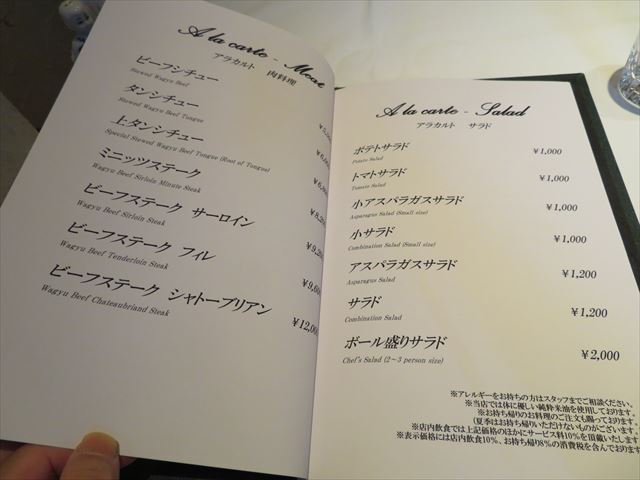 A la carte - Meat
アラカルト 肉料理
ビーフシチュー
Stewed Wagyu Beef
¥5,
タンシチュー
Stewed Wagyu Beef Tongue
¥6,
上タンシチュー
Special Stewed Wagyu Beef Tongue (Root of Tongue)
¥6,
ミニッツステーク
Wagyu Beef Sirloin Minute Steak
¥8,2
ビーフステーク サーロイン
Wagyu Beef Sirloin Steak
¥9,2
ビーフステーク フィレ
Wagyu Beef Tenderloin Steak
¥9,6
ビーフステーク シャトーブリアン
Wagyu Beef Chateaubriand Steak
¥12,00
A la carte - Salad
アラカルト サラド
ポテトサラド ¥1,000
Potato Salad
トマトサラド ¥1,000
Tomato Salad
小アスパラガスサラド ¥1,000
Asparagus Salad (Small size)
小サラド ¥1,000
Combination Salad (Small size)
アスパラガスサラド ¥1,200
Asparagus Salad
サラド ¥1,200
Combination Salad
ボール盛りサラド ¥2,000
Chef's Salad (2～3 person size)
※アレルギーをお持ちの方はスタッフまでご相談ください。
※当店では体に優しい純粋米油を使用しております。
※お持ち帰りのお料理のご注文も賜っております。
(夏季はお持ち帰りいただけないものがございます。
※店内飲食では上記価格のほかにサービス料10%を頂戴いたします
※表示価格には店内飲食10%、お持ち帰り8%の消費税を含んでおります